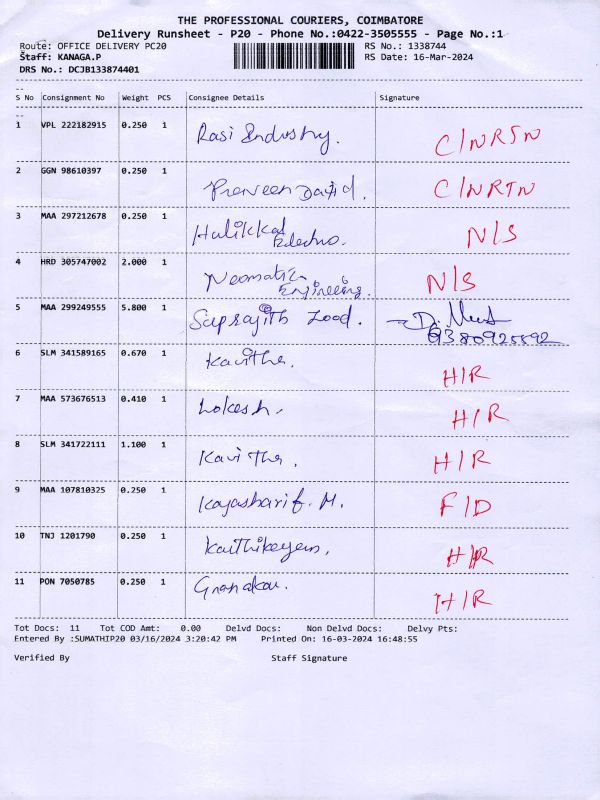 THE PROFESSIONAL COURIERS, COIMBATORE
Delivery Runsheet - P20 - Phone No.:0422-3505555 - Page No.:1
Route: OFFICE DELIVERY PC20 RS No.: 1338744
Staff: KANAGA.P RS Date: 16-Mar-2024
DRS No.: DCJB133874401
S No Consignment No Weight PCS Consignee Details Signature
1 VPL 222182915 0.250 1 Rasi Industry. C/NRTN
2 GGN 98610397 0.250 1 Praveen David. C/NRTN
3 MAA 297212678 0.250 1 Halikkal Electro. N/S
4 HRD 305747002 2.000 1 Neomatrix Engineering. N/S
5 MAA 299249555 5.800 1 Suprajith Food.
6 SLM 341589165 0.670 1 Kavitha. H/R
7 MAA 573676513 0.410 1 Lokesh. H/R
8 SLM 341722111 1.100 1 Kavitha. H/R
9 MAA 107810325 0.250 1 Kajasharif. M. F/D
10 TNJ 1201790 0.250 1 Karthikeyan. H/R
11 PON 7050785 0.250 1 H/R
Tot Docs: 11 Tot COD Amt: 0.00 Delvd Docs: Non Delvd Docs: Delvy Pts:
Entered By :SUMATHIP20 03/16/2024 3:20:42 PM Printed On: 16-03-2024 16:48:55
Verified By Staff Signature